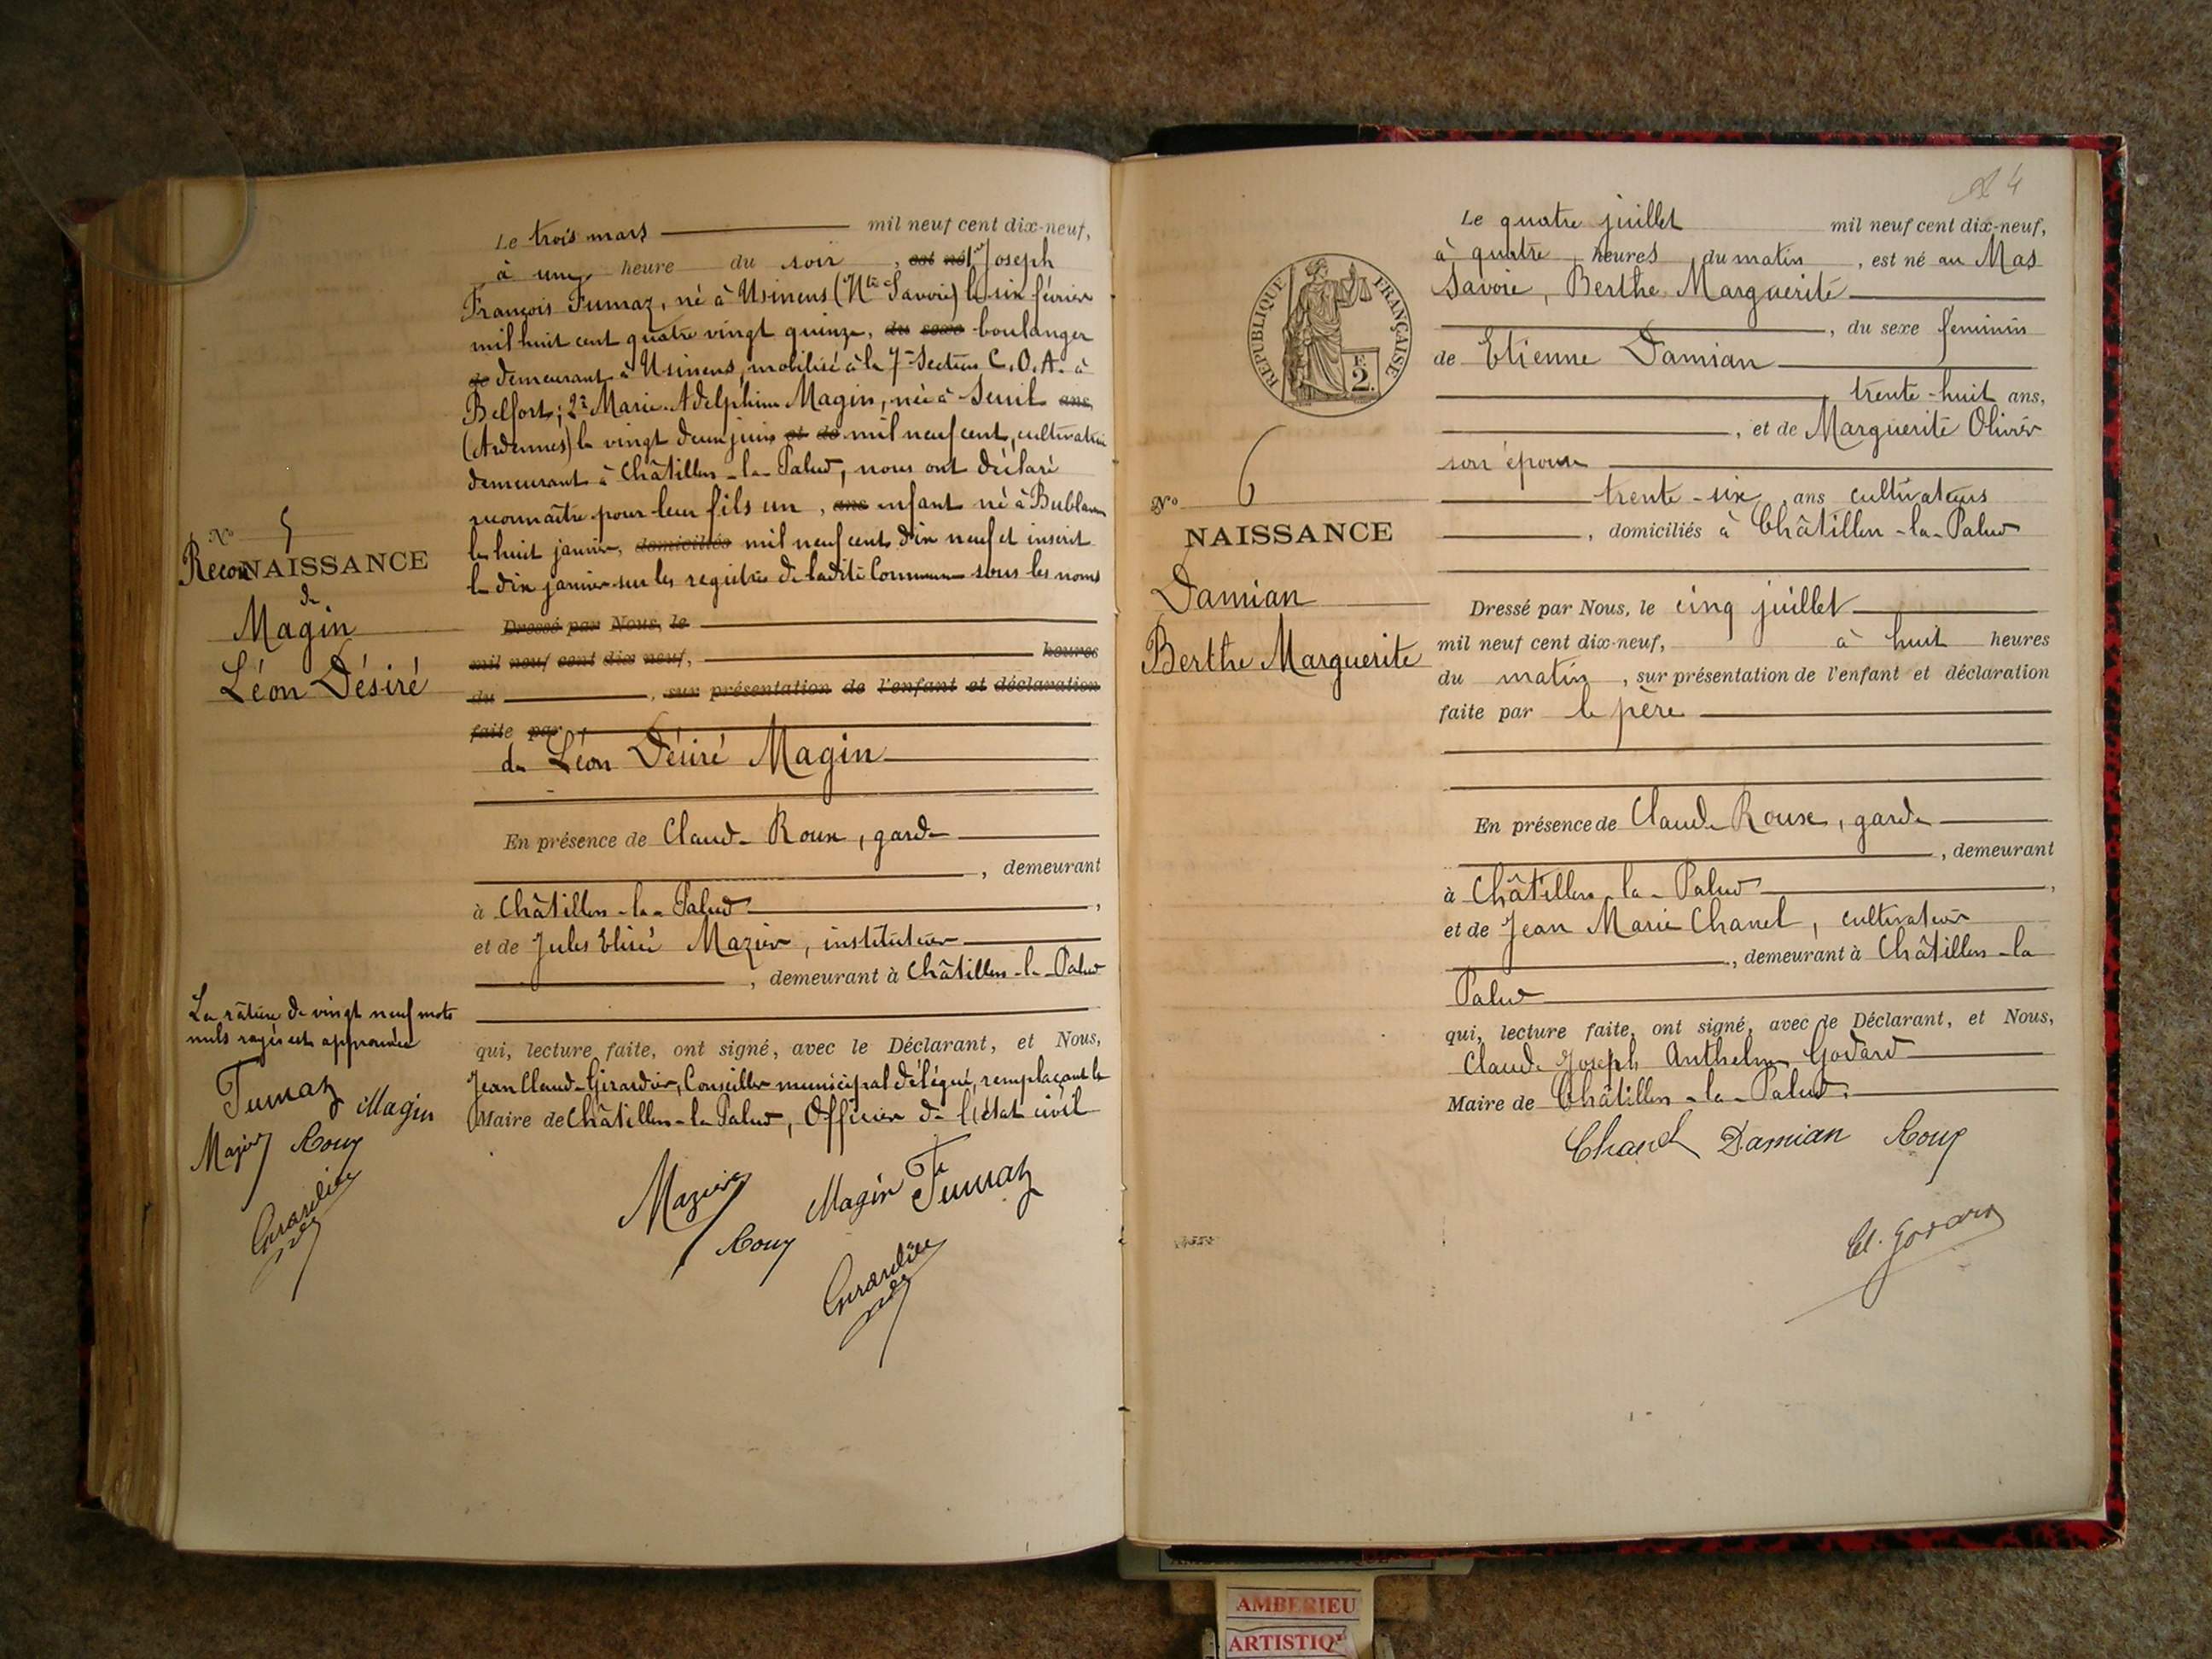 Le trois mars mil neuf cent dix-neuf,
à une heure du soir, est né 1er Joseph
François Fumaz, né à Usinens (Hte Savoie) le six février
mil huit cent quatre vingt quinze, du sexe boulanger
de demeurant à Usinens, mobilisé à la 7e Section C.O.A. à
Belfort; 2e Marie Adelphine Magin, née à Seuil ans,
(Ardennes) le vingt deux juin et de mil neuf cent, cultivatrice
demeurant à Châtillon-la-Palud, nous ont déclaré
reconnaître pour leur fils un, ans enfant né à Bublanne
le huit janvier, domiciliés mil neuf cent dix neuf et inscrit
le dix janvier sur les registres de ladite Commune sous les noms
Dressé par Nous, le
mil neuf cent dix neuf, heures
du , sur présentation de l'enfant et déclaration
faite par
de Léon Désiré Magin
En présence de Claude Roux, garde
, demeurant
à Châtillon-la-Palud,
et de Jules Elisée Mazier, instituteur
, demeurant à Châtillon-la-Palud
qui, lecture faite, ont signé, avec le Déclarant, et Nous,
Jean Claude Girardier, Conseiller municipal délégué, remplaçant le
Maire de Châtillon-la-Palud, Officier de l'état civil
Mazier Magin Fumaz
Roux
Girardier
No 5
ReconNAISSANCE
de
Magin
Léon Désiré
La rature de vingt neuf mots
nuls rayés est approuvée
Fumaz Magin
Mazier Roux
Girardier
4
Le quatre juillet mil neuf cent dix-neuf,
à quatre heures du matin, est né au Mas
Savoie, Berthe Marguerite
, du sexe feminin
de Etienne Damian
trente-huit ans,
, et de Marguerite Olivier
son épouse
trente-six ans cultivateurs
, domiciliés à Châtillon-la-Palud
Dressé par Nous, le cinq juillet
mil neuf cent dix-neuf, à huit heures
du matin, sur présentation de l'enfant et déclaration
faite par le père
En présence de Claude Roux, garde
, demeurant
à Châtillon-la-Palud,
et de Jean Marie Chanel, cultivateur
, demeurant à Châtillon-la
Palud
qui, lecture faite, ont signé, avec le Déclarant, et Nous,
Claude Joseph Anthelme Godard
Maire de Châtillon-la-Palud.
Chanel Damian Roux
Cl. Godard
REPUBLIQUE FRANÇAISE
F.
2.
No 6
NAISSANCE
Damian
Berthe Marguerite
AMBERIEU
ARTISTIQ